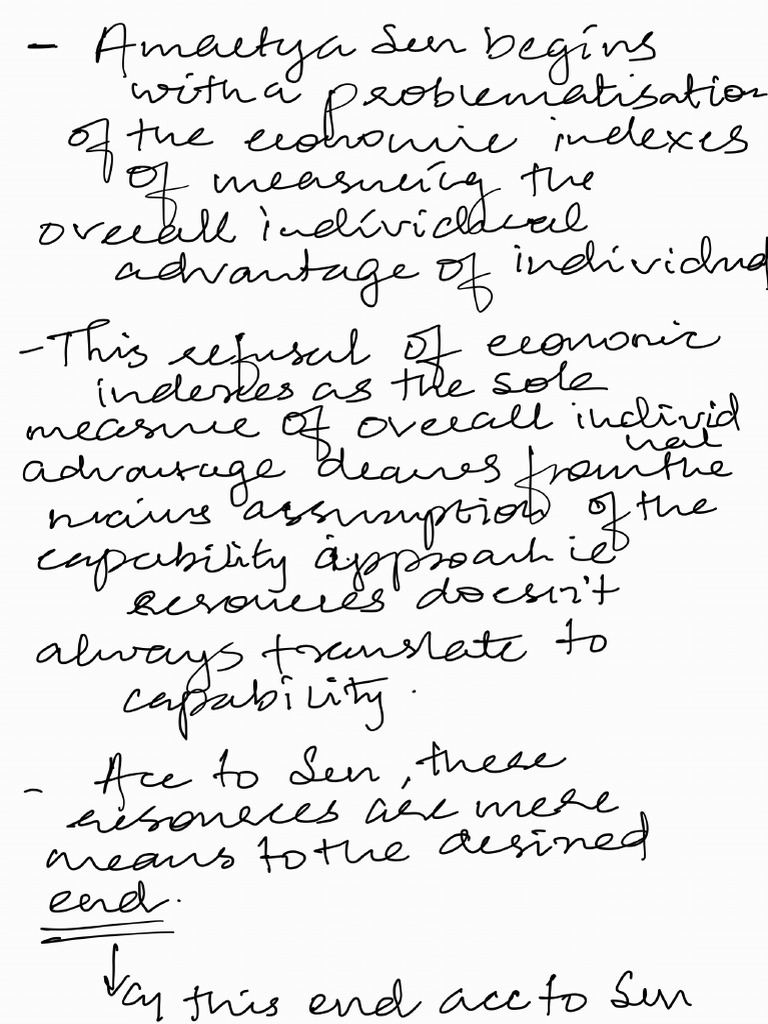 - Amartya Sen begins
with a problematisation
of the economic indexes
of measuring the
overall individual
advantage of individual
- This refusal of economic
indexes as the sole
measure of overall individ
ual
advantage draws from the
main assumption of the
capability approach ie
resources doesn't
always translate to
capability.
- Acc to Sen, these
resources are mere
means to the desired
end.
↓
this end acc to Sen